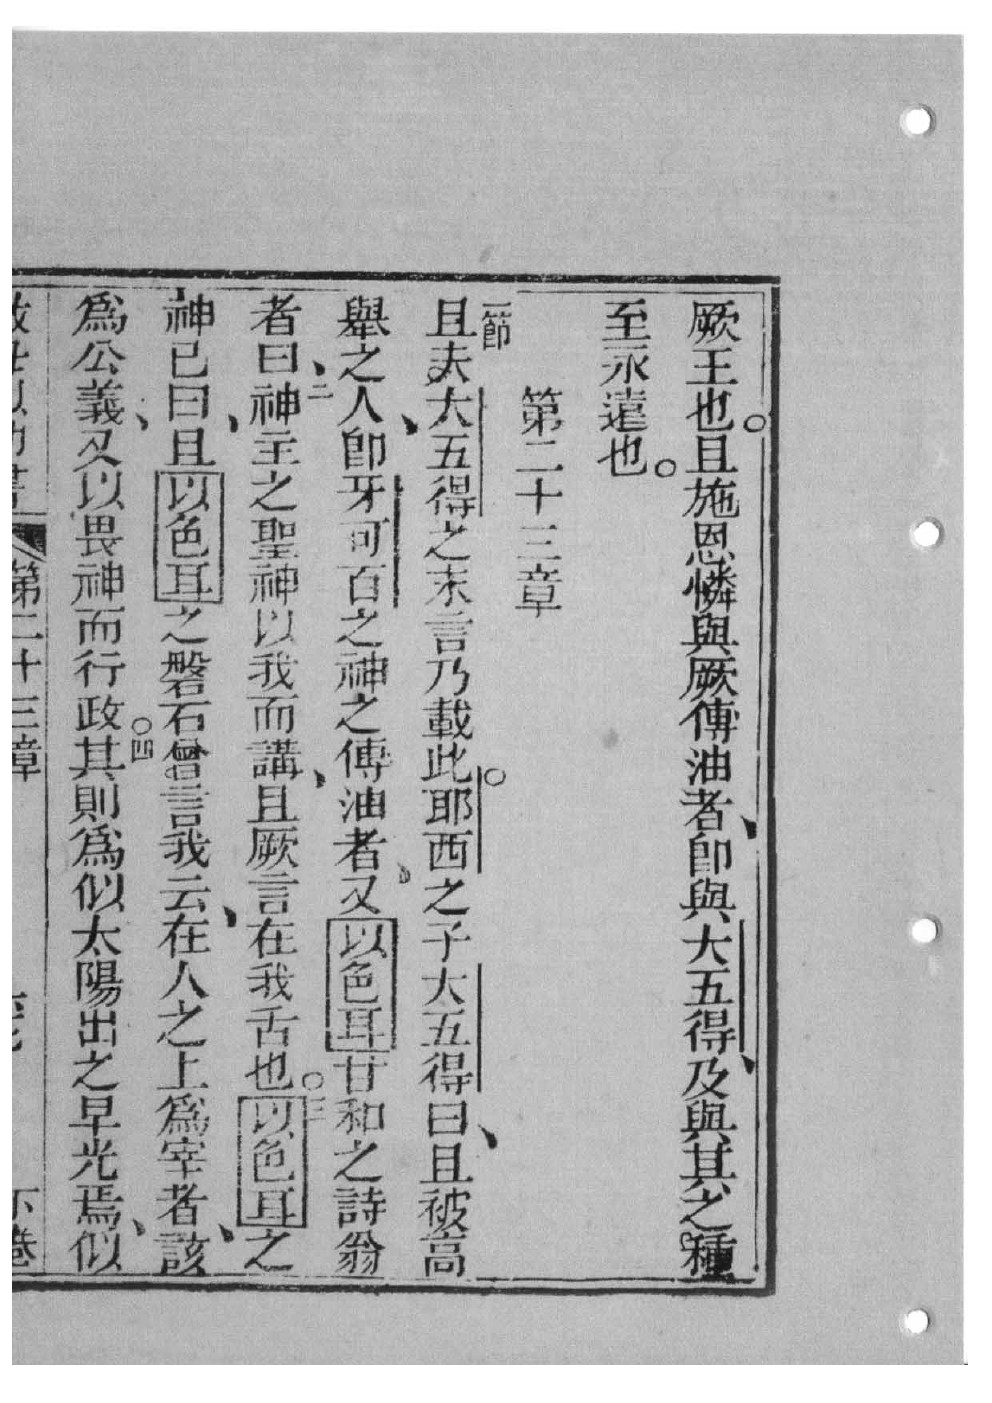 厥王也。且施恩憐與厥傅油者、卽與大五得、及與其之種
至永遠也。
第二十三章
一節
且夫大五得之末言乃載此。耶西之子大五得曰、且被高
舉之人、卽牙可百之神之傅油者、又以色耳甘和之詩翁
者曰、二神主之聖神以我而講、且厥言在我舌也。三以色耳之
神已曰、且以色耳之磐石曾言我云、在人之上爲宰者、該
爲公義、又以畏神而行政。四其則爲似太陽出之早光焉、似
第二十三章 下卷